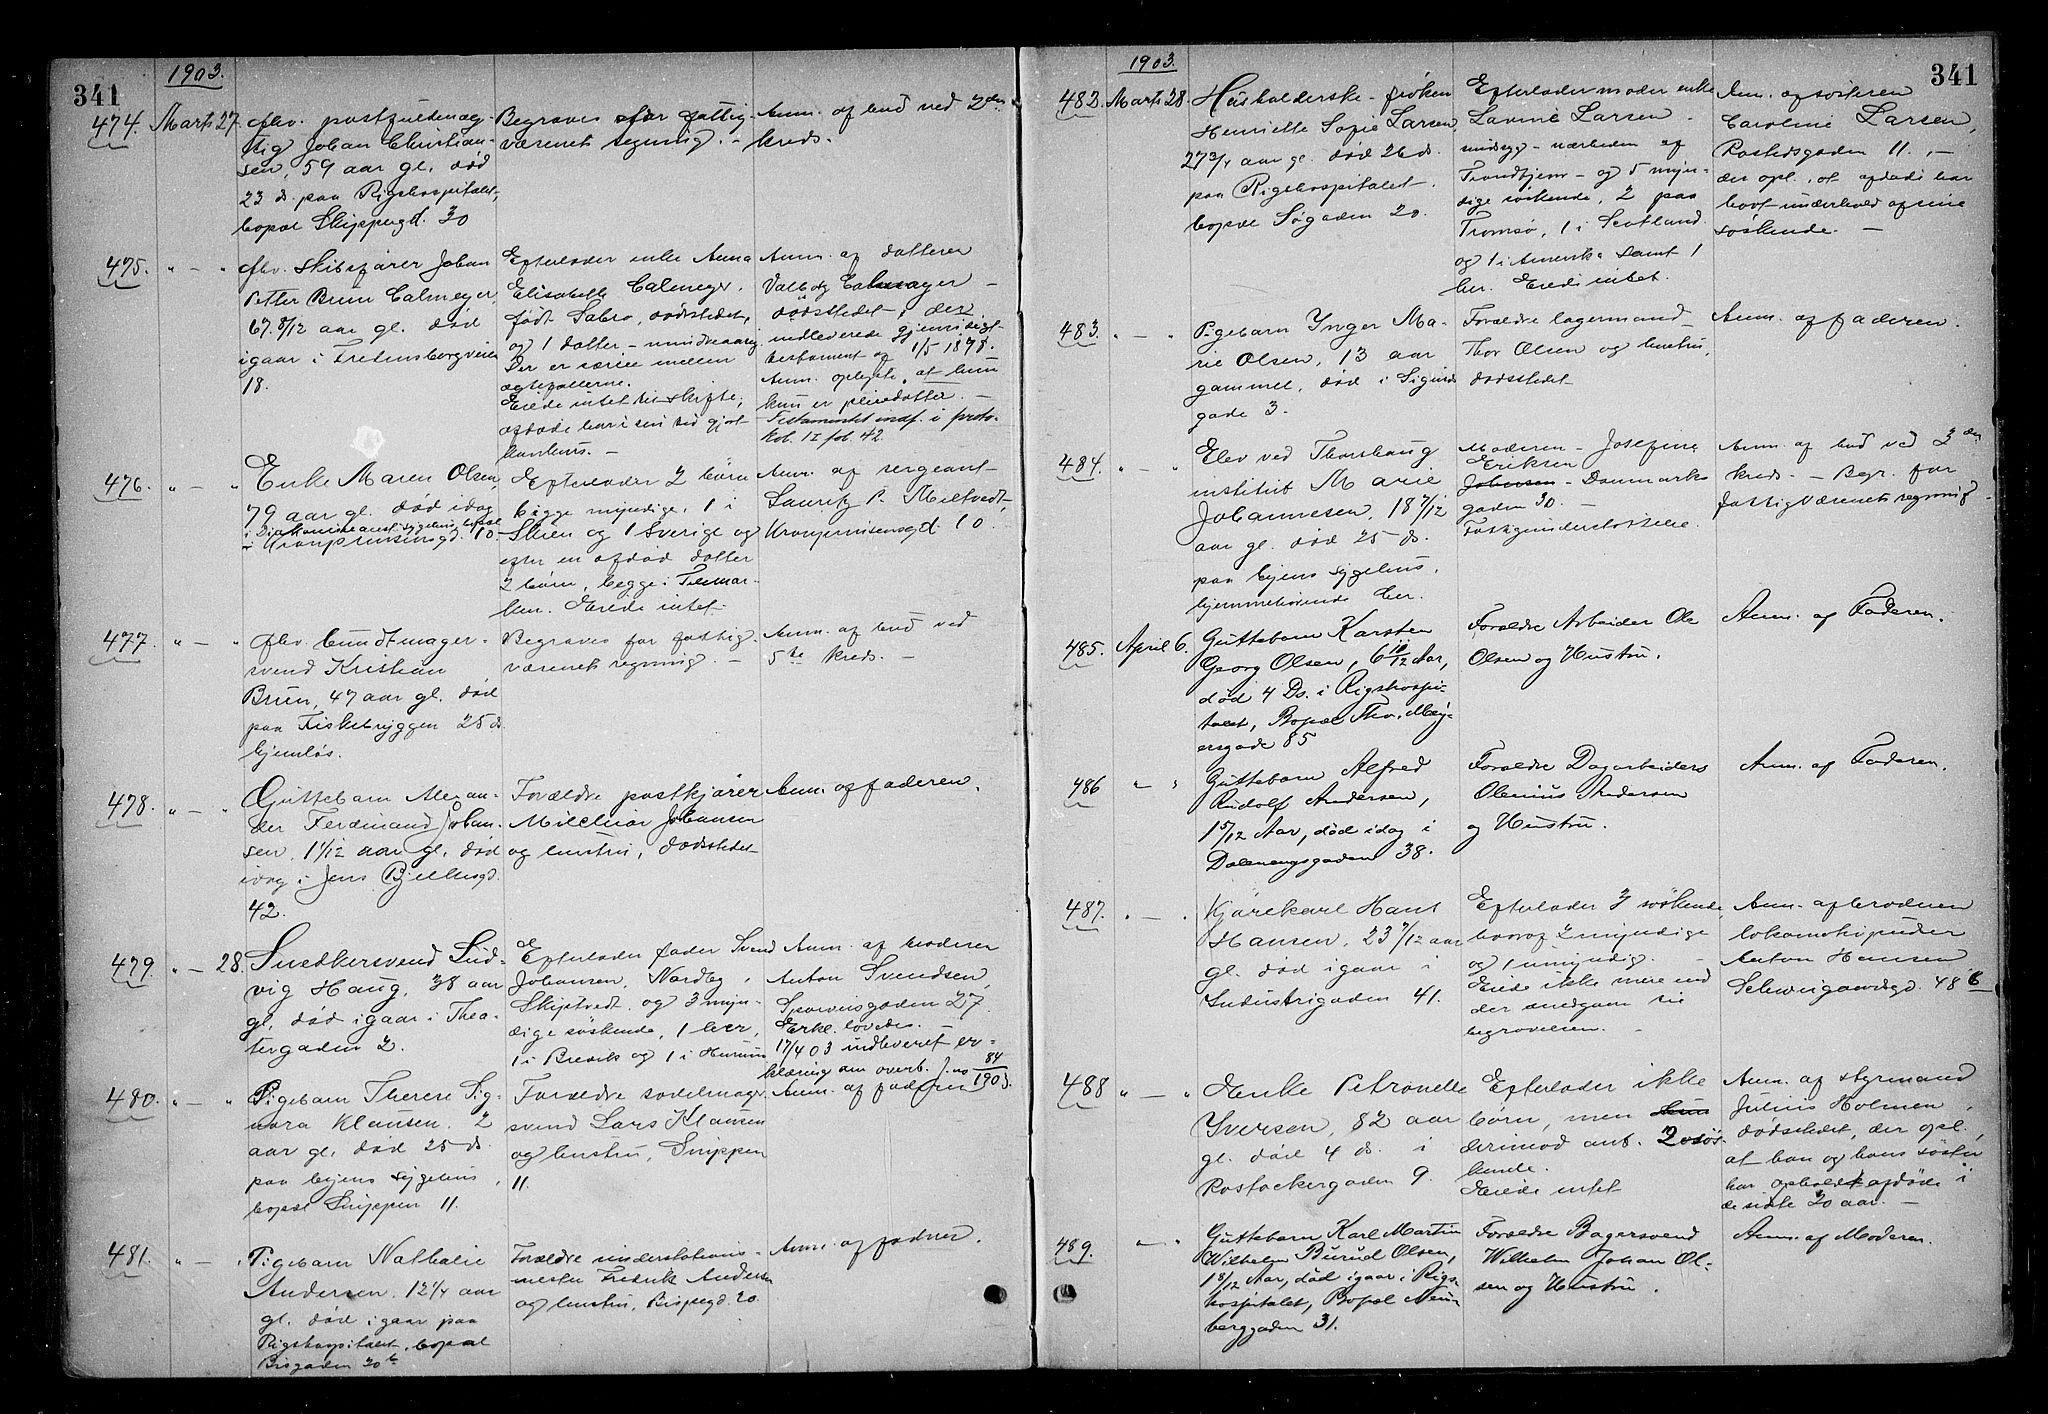 341
1903.
474. Marts 27.
afv. postfuldmæg-
tig Johan Christian-
sen, 59 aar gl. død
23 ds. paa Rigshospitalet,
bopæl Skippergd. 30
Begraves for fattig-
væsenets regning. -
Anm. af bud ved 2den
kreds.
475. " - "
afv. skibsfører Johan
Petter Bruun Calmeyer,
67 8/12 aar gl. død
igaar i Fredensborgveien
18.
Efterlader enke Anna
Elisabeth Calmeyer,
født Sabro, dødsstedet,
og 1 datter - umündig
Der er særeie mellem
ægtefællerne.
Eiede intet til skifte;
afdøde har i sin tid gjort
konkurs. -
Anm. af datteren
Valborg Calmeyer -
dødsstedet, der
indleverede gjensidigt
testament af 1/5 1878.
Anm. oplyste, at hun
kun er pleiedatter. -
Testamentet indf. i proto-
kol II fol. 42.
476. " - "
Enke Maren Olsen,
79 aar gl. død idag
i Diakonisseanst. sygehus, bopæl
i Kronprinsensgd. 10
Efterlader 2 børn
begge myndige, 1 i
Skien og 1 Sverige og
efter en afdød datter
2 børn, begge i Telemar-
ken. Eiede intet
Anm. af sergeant
Lauritz P. Meltvedt,
Kronprinsensgd. 10.
477. " - "
afv. bundtmager-
svend Kristian
Bruun, 47 aar gl. død
paa Fiskebryggen 25 ds
hjemløs.
Begraves for fattig-
væsenets regning. -
Anm. af bud ved
5te kreds. -
478. " - "
Guttebarn Alexan-
der Ferdinand Johan-
sen, 1 1/12 aar gl. død
idag i Jens Bjelkesgd.
42.
Forældre postkjører
Milchior Johansen
og hustru, dødsstedet
Anm. af faderen.
479. " - 28.
Snedkersvend Lud-
vig Haug, 38 aar
gl. død igaar i Thea-
tergaden 2.
Efterlader fader Svend
Johansen, Nordby,
Skiptvedt og 3 myn-
dige søskende, 1 her,
1 i Brevik og 1 i Hurum
Anm. af broderen
Anton Svendsen,
Sporveisgaden 27.
Erkl. lovedes. -
17/4 03 indleveret er-
klæring om overt. J. no 84/1903.
480. " - "
Pigebarn Therese Sig-
nora Klausen, 2
aar gl. død 25 ds.
paa byens sygehus,
bopæl Snippen 11.
Forældre sadelmager-
svend Lars Klausen
og hustru, Snippen
11.
Anm. af faderen
481. " - "
Pigebarn Nathalie
Andersen, 12 1/4 aar
gl. død igaar paa
Rigshospitalet, bopæl
Bispegaden 20 b
Forældre understations-
mester Fredrik Andersen
og hustru, Bispegd. 20.
Anm. af faderen.
1903.
341
482. Marts 28.
Husholderske - frøken
Henriette Sofie Larsen,
27 3/4 aar gl. død 26 ds.
paa Rigshospitalet.
bopæl Søgaden 20.
Efterlader moder enke
Lavine Larsen -
sindsyg - nærheden af
Trondhjem - og 5 myn-
dige søskende, 2 paa
Tromsø, 1 i Scotland
og 1 i Amerika samt 1
her. Eiede intet.
Anm. af søsteren
Caroline Larsen,
Rostedsgaden 11, -
der opl. at afdøde har
havt underhold af sine
søskende. -
483. " - "
Pigebarn Ynger Ma-
rie Olsen, 13 aar
gammel, død i Sigurds
gade 3.
Forældre lagermand
Thor Olsen og hustru,
dødsstedet
Anm. af faderen.
484. " - "
Elev ved Thorshaug
institut Marie
Johannesen, 18 7/12
aar gl. død 25 ds.
paa byens sygehus,
hjemmehørende her.
Moderen - Josefine
Eriksen
Johansen - Danmarks
gaden 30. -
Fattigunderstøttelse.
Anm. af bud ved 3den
kreds. - Begr. for
fattigvæsenets regning
485. April 6.
Guttebarn Karsten
Georg Olsen, 6 10/12 Aar,
død 4 Ds. i Rigshospi-
talet, Bopæl Thv. Mey-
ersgade 85
Forældre Arbeider Ole
Olsen og Hustru.
Anm. af Faderen.
486 " "
Guttebarn Alfred
Rudolf Andersen,
1 5/12 Aar, død idag i
Dælenenggaden 38.
Forældre Dagarbeider
Olenius Andersen
og Hustru.
Anm. af Faderen.
487. " - "
Kjørekarl Hans
Hansen, 23 7/12 aar
gl. død igaar i
Industrigaden 41.
Efterlader 3 søskende
hvoraf 2 myndige
og 1 umyndig. -
Eiede ikke mere end
der medgaar til
begravelsen. -
Anm. af broderen
lokomotivpudser
Anton Hansen
Schweigaardsgd. 48 b
488 " - "
Enke Petronelle
Iversen, 82 aar
gl. død 4 ds. i
Rostockergaden 9.
Efterlader ikke
børn, men
derimod ant. 2 søs-
kende.
Eiede intet
Anm. af styrmand
Julius Holmen,
dødsstedet, der opl.
at han og hans søster
har opholdt afdøde i
de sidste 20 aar. -
489. " - "
Guttebarn Karl Martin
Wilhelm Burud Olsen,
1 8/12 Aar, død igaar i Rigs-
hospitalet, Bopæl Neu-
berggaden 31.
Forældre Bagersvend
Wilhelm Johan Ol-
sen og Hustru.
Anm. af Moderen.